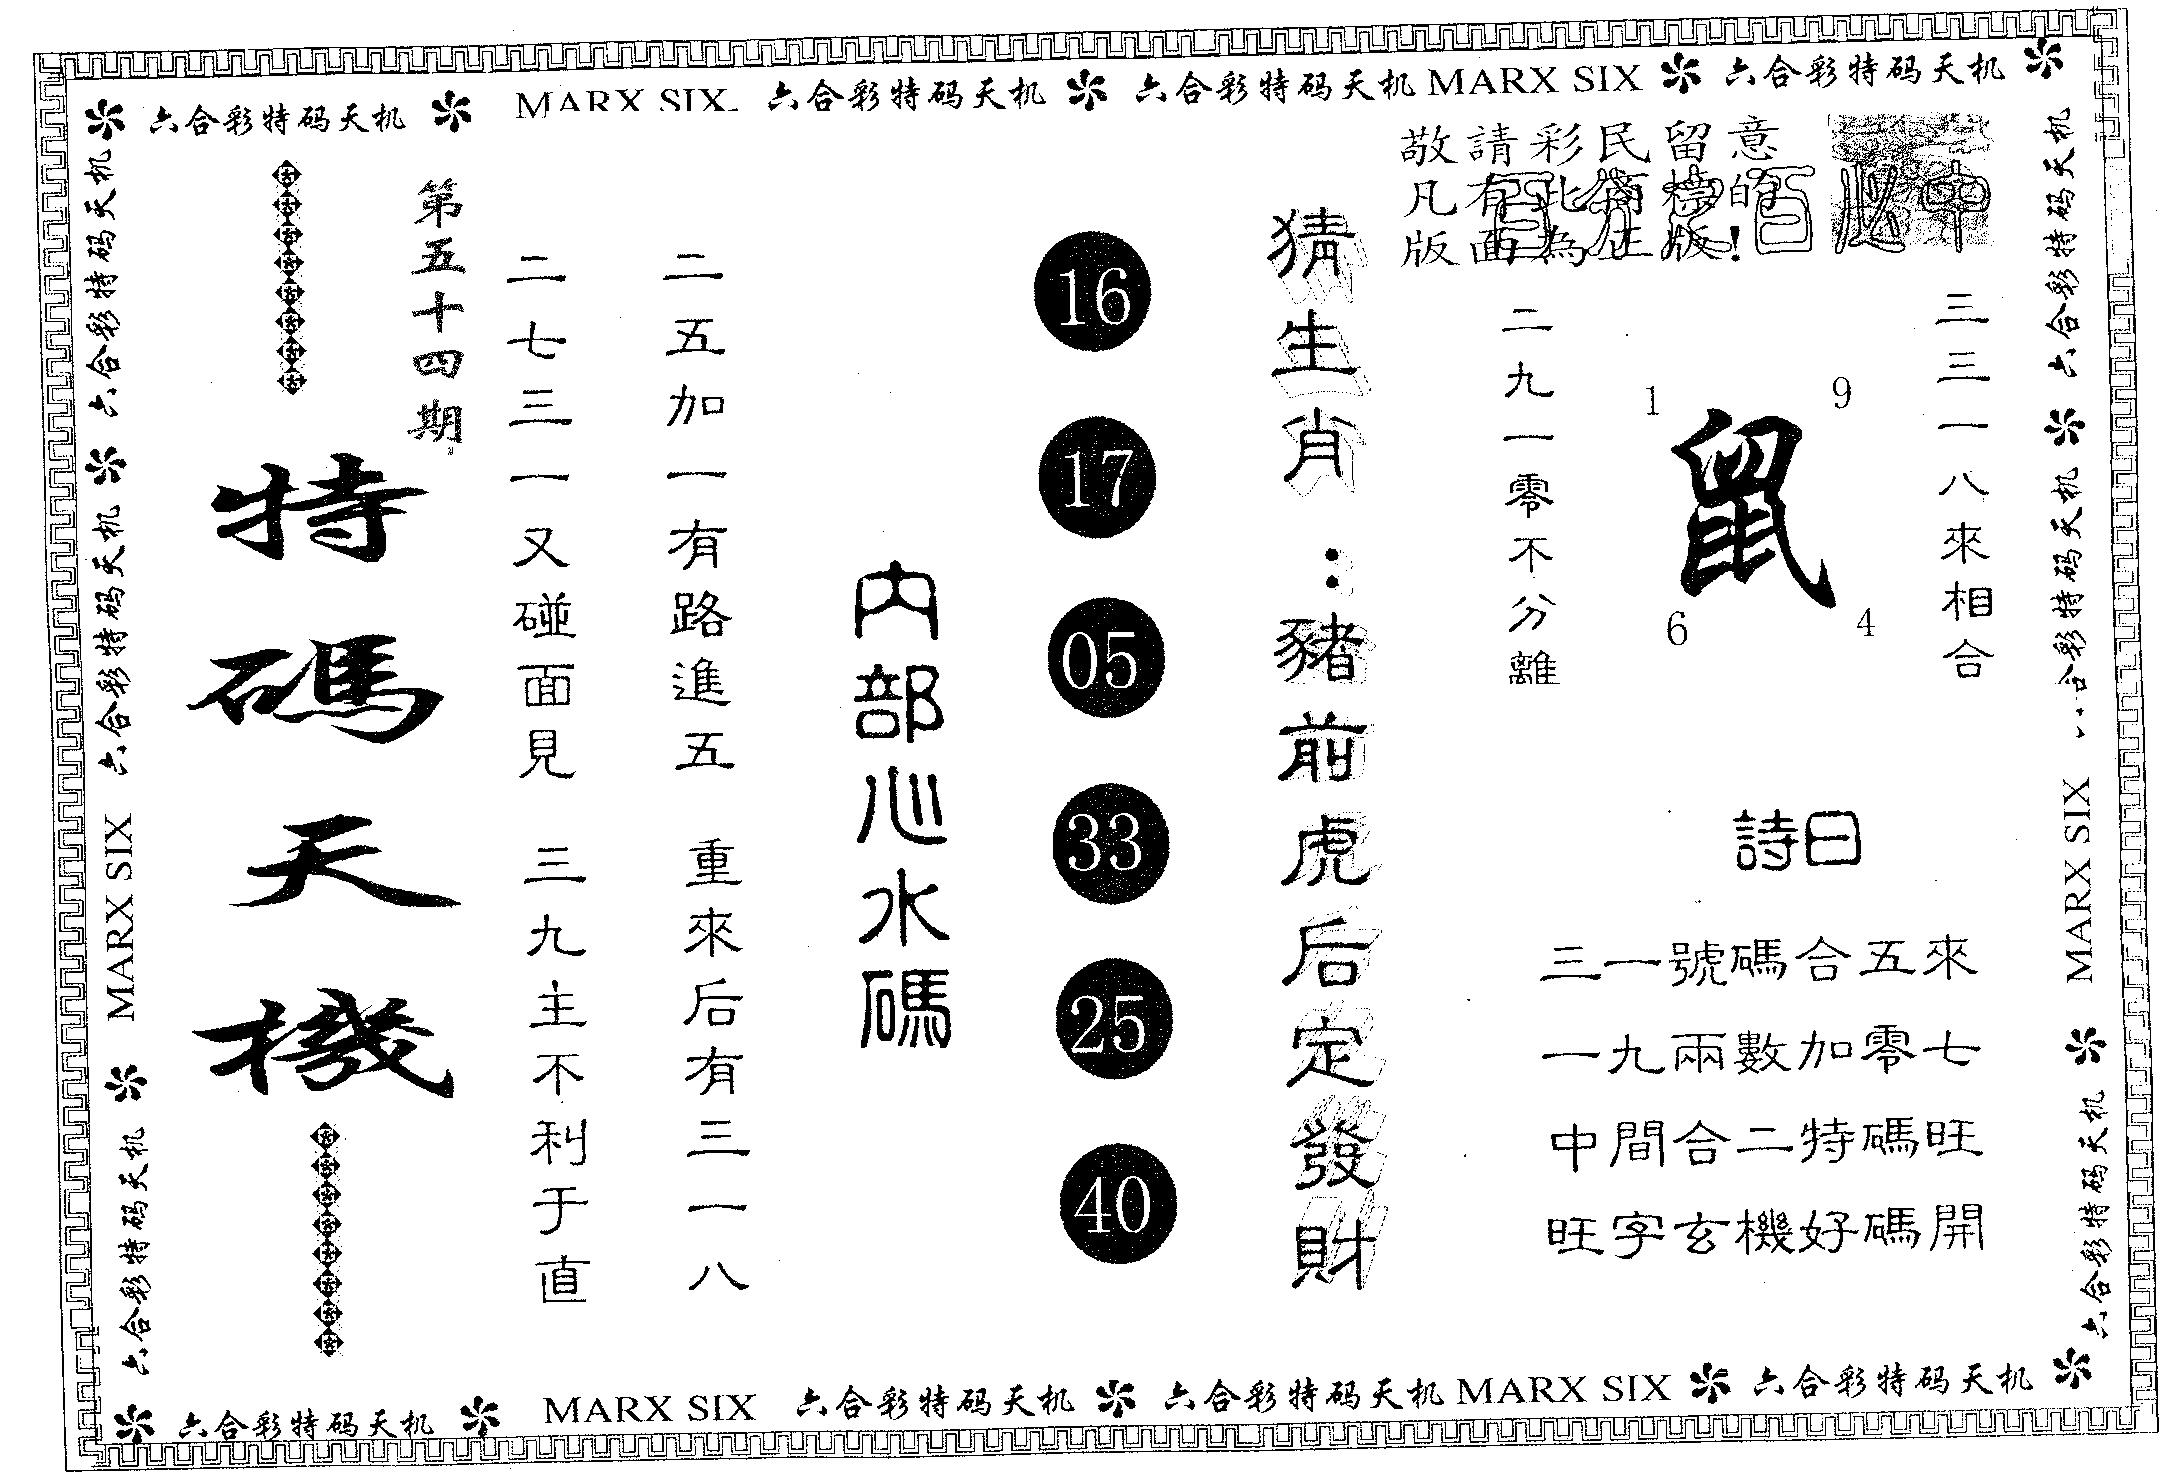 六合彩特码天机 MARX SIX 六合彩特码天机 六合彩特码天机 MARX SIX 六合彩特码天机
敬請彩民留意
凡有此商標的
版面為正版!
百發百必中
三三一八來相合
1 9
鼠
6 4
二九一零不分離
詩曰
三一號碼合五來
一九兩數加零七
中間合二特碼旺
旺字玄機好碼開
猜生肖：豬前虎后定發財
16
17
05
33
25
40
內部心水碼
二五加一有路進五 重來后有三一八
二七三一又碰面見 三九主不利于直
第五十四期
特碼天機
六合彩特码天机 六合彩特码天机 MARX SIX 六合彩特码天机
六合彩特码天机 六合彩特码天机 MARX SIX 六合彩特码天机
六合彩特码天机 MARX SIX 六合彩特码天机 六合彩特码天机 MARX SIX 六合彩特码天机